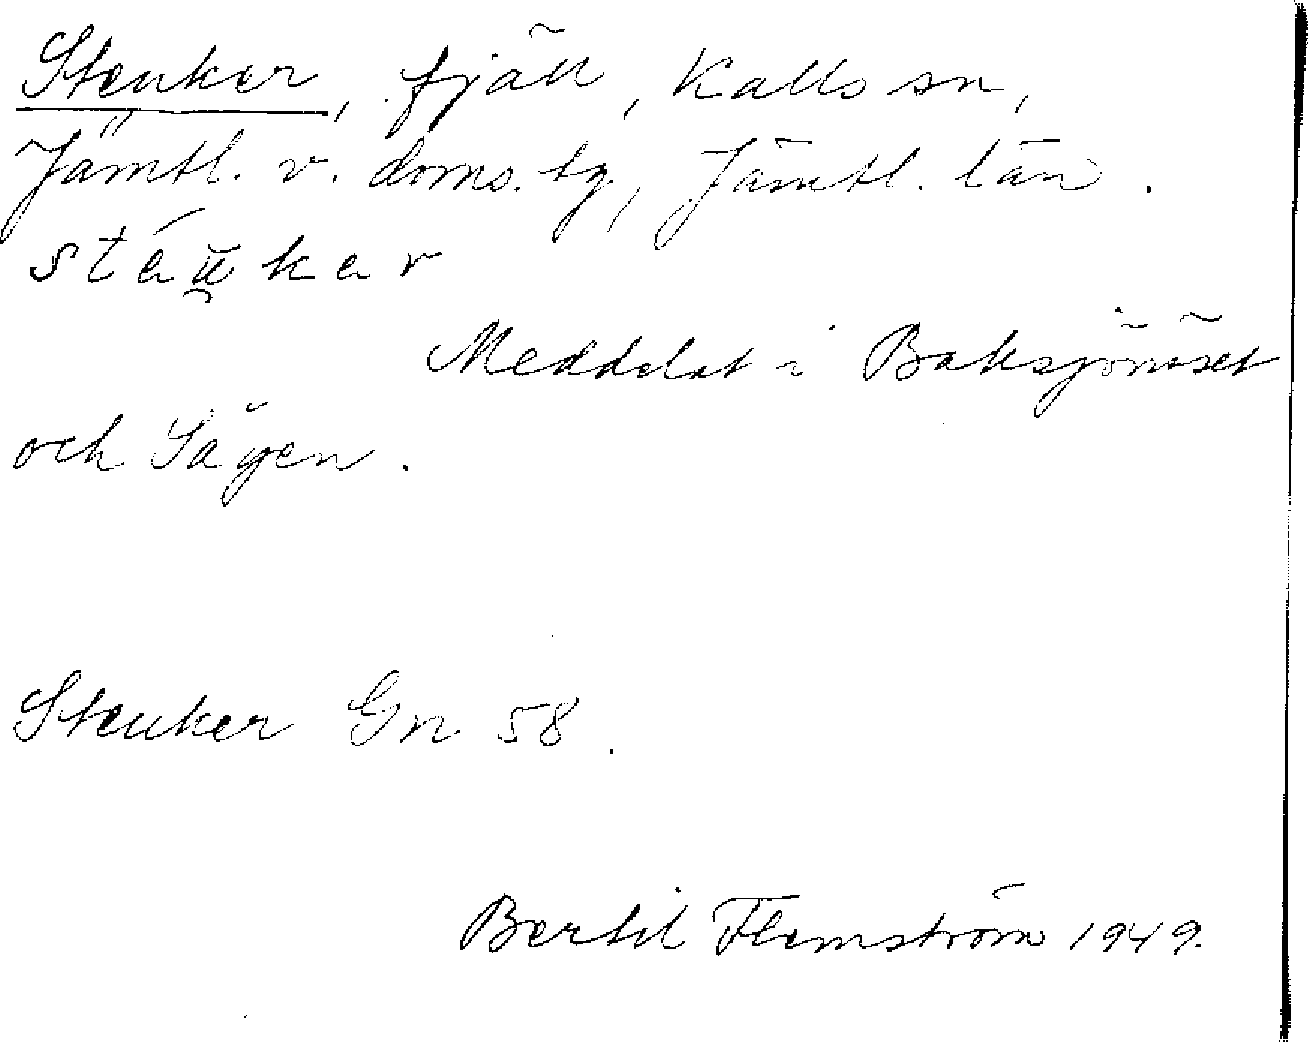 Steuker, fjäll, Kalls sn,
Jämtl. v. doms. tg, Jämtl. län.
stéu̯ker
Meddelat i Baksjönäset
och Sågen.
Steuker Gn 58.
Bertil Flemström 1949.